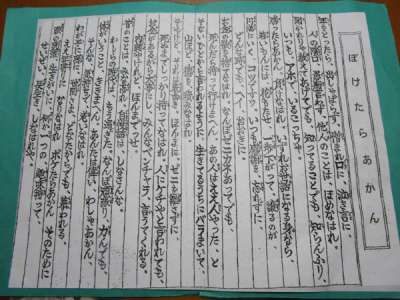 ぼけたらあかん
年をとったら、出しゃばらず、憎まれ口に、泣き言に、
人の陰口、愚痴言わず、他人のことは、ほめなはれ、
聞かれりゃ教えてあげても、知ってることでも、知らんふり、
いつも、アホでいるこっちゃ。
勝ったらあかん、負けなはれ、いずれお世話になる身なら、
若いもんには、花もたせ、一歩下がって、譲るのが、
円満にいく、コツですわ。いつも感謝を、忘れずに、
どんな時でも、おおきに。
お金の欲を、捨てなはれ、なんぼゼニカネあっても、
死んだら持って行けまへん。あの人はええ人やった、と
そないひとから言われるように、生きてるうちにバラまいて、
山ほど、徳を、積みなはれ。
そやけど、それは表向き、ほんまは、ゼニを離さずに、
死ぬまでしっかり持ってなはれ、人にケチやと言われても、
お金があるから大事にし、みんなベンチャラ言うてくれる。
内緒やけれど、ほんまでっせ。
昔のことは、みな忘れ、自慢話は、しなさんな、
わしらの時代は、もう過ぎた、なんぼ頑張り、力んでも、
体がいうこと、ききまへん、あんたは偉い、わしゃあかん、
そんな気持ちで、おりなはれ。
わが子に孫に、世間さま、どなたからでも、慕われる、
ええ年寄りに、なりなはれ、ボケたらあかん、そのために